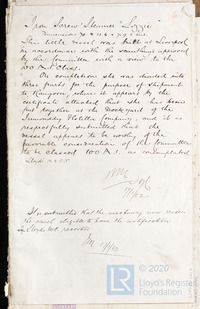 Iron Screw Steamer Lizzie
Dimensions 70 x 11.6 x
This little vessel was built at Liverpool
in accordance with the scantlings approved
by this Committee with a view to the
100 A.1. Class
On completion she was divided into
three parts for the purpose of shipment
to Rangoon, where it appears by the
certificate attached that she has been
put together at the Dockyard of the
Irrawaddy Flotilla Company, and it is
respectfully submitted that this
vessel appears to be worthy of the
favorable consideration of the Committee
to be classed 100 A.1. as contemplated
Lloyd's
It is submitted that the machinery
this vessel eligible to have the notification
in Lloyd's
© 2020
Lloyd's Register
Foundation